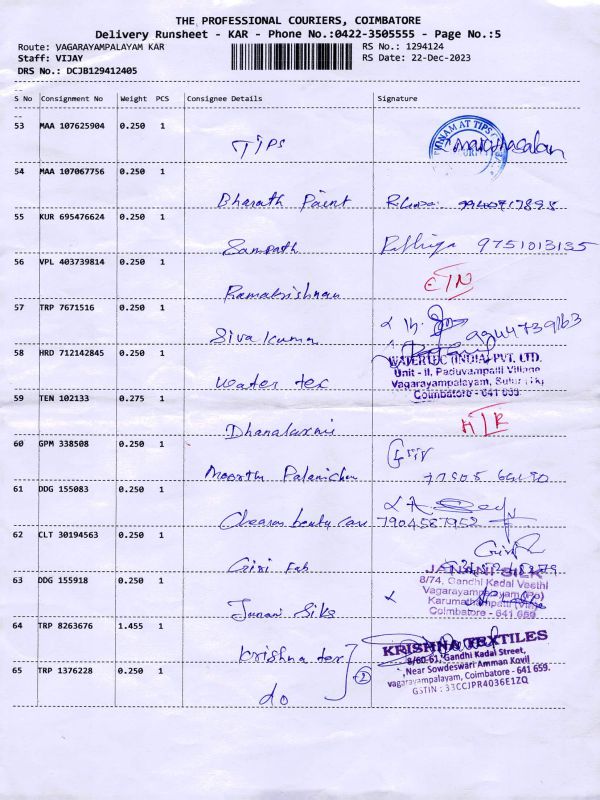 THE PROFESSIONAL COURIERS, COIMBATORE
Delivery Runsheet - KAR - Phone No.:0422-3505555 - Page No.:5
Route: VAGARAYAMPALAYAM KAR
RS No.: 1294124
Staff: VIJAY
RS Date: 22-Dec-2023
DRS No.: DCJB129412405
S No Consignment No Weight PCS Consignee Details Signature
53 MAA 107625904 0.250 1
TIPS
54 MAA 107067756 0.250 1
Bharath Paint
55 KUR 695476624 0.250 1
Sampath 9751013135
56 VPL 403739814 0.250 1
Ramakrishnan
57 TRP 7671516 0.250 1
Siva kumar 9944739163
58 HRD 712142845 0.250 1
Water tex
WATERTEC (INDIA) PVT. LTD.
Unit - II, Paduvampalli Village
Vagarayampalayam, Sulur (Tk)
Coimbatore - 641 659.
59 TEN 102133 0.275 1
Dhanalaxmi
60 GPM 338508 0.250 1
61 DDG 155083 0.250 1
7904587952
62 CLT 30194563 0.250 1
Giri Fab
63 DDG 155918 0.250 1
JANANI SILK
8/74, Gandhi Kadai Veethi
Vagarayampalayam (Po)
Karumathampatti (Via)
Coimbatore - 641 659.
64 TRP 8263676 1.455 1
Krishna tex
65 TRP 1376228 0.250 1
do 2
KRISHNA TEXTILES
8/60-61, Gandhi Kadai Street,
Near Sowdeswari Amman Kovil
vagarayampalayam, Coimbatore - 641 659.
GSTIN : 33CCJPR4036E1ZQ